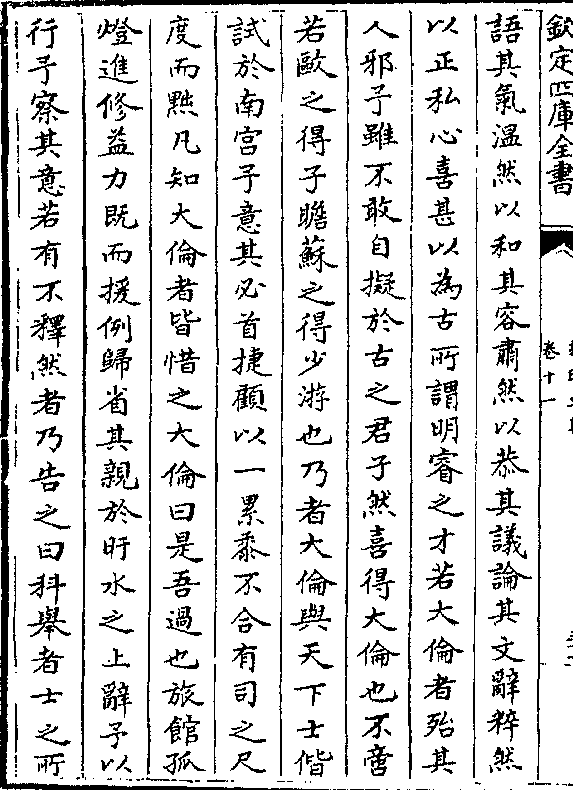 欽定四庫全書
卷十一
語其氣溫然以和其容肅然以恭其議論其文辭粹然
以正私心喜甚以為古所謂明睿之才若大倫者殆其
人邪予雖不敢自擬於古之君子然喜得大倫也不啻
若歐之得子瞻蘇之得少游也乃者大倫與天下士偕
試於南宮予意其必首捷顧以一累黍不合有司之尺
度而黜凡知大倫者皆惜之大倫曰是吾過也旅館孤
燈進修益力既而援例歸省其親於旴水之上辭予以
行予察其意若有不釋然者乃告之曰科舉者士之所